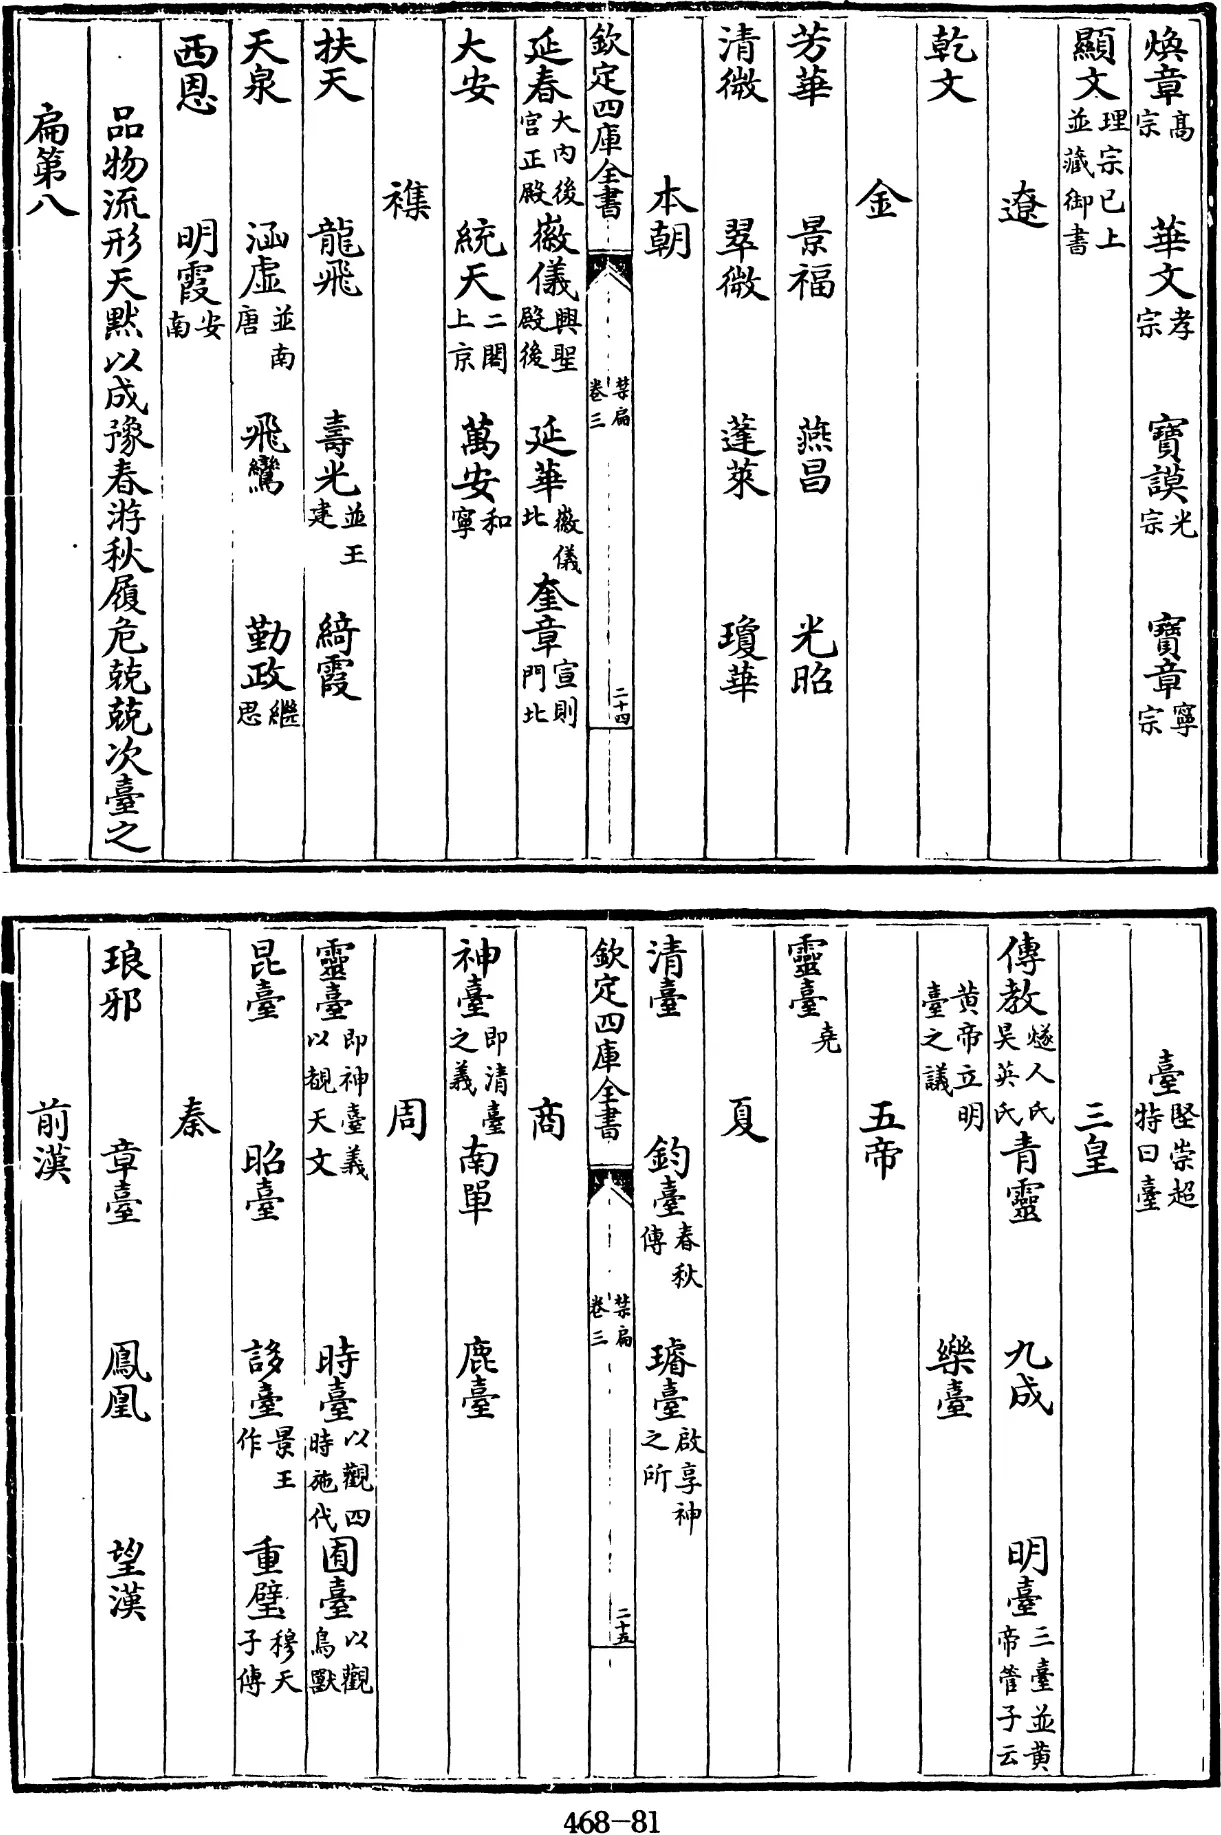 煥章高宗　華文孝宗　寶謨光宗　寶章寧宗
顯文理宗已上並藏御書
遼
乾文
金
芳華　景福　燕昌　光昭
清微　翠微　蓬萊　瓊華
本朝
欽定四庫全書　禁扁卷三　二十四
延春大内後宫正殿　徽儀興聖殿後　延華徽儀北　奎章宣則門北
大安　統天二閣上京　萬安和寧
襍
扶天　龍飛　壽光並王建　綺霞
天泉　涵虛並南唐　飛鸞　勤政繼思
西恩　明霞安南
品物流形天黙以成豫春游秋履危兢兢次臺之
扁第八
臺堅崇超特曰臺
三皇
傳教燧人氏昊英氏　青靈　九成　明臺三臺並黄帝管子云
黄帝立明臺之議　樂臺
五帝
靈臺堯
夏
清臺　鈞臺春秋傳　璿臺啟享神之所
欽定四庫全書　禁扁卷三　二十五
商
神臺即清臺之義　南單　鹿臺
周
靈臺即神臺義以覩天文　時臺以觀四時施代　囿臺以觀鳥獸
昆臺　昭臺　謻臺景王作　重璧穆天子傳
秦
琅邪　章臺　鳳凰　望漢
前漢
468-81